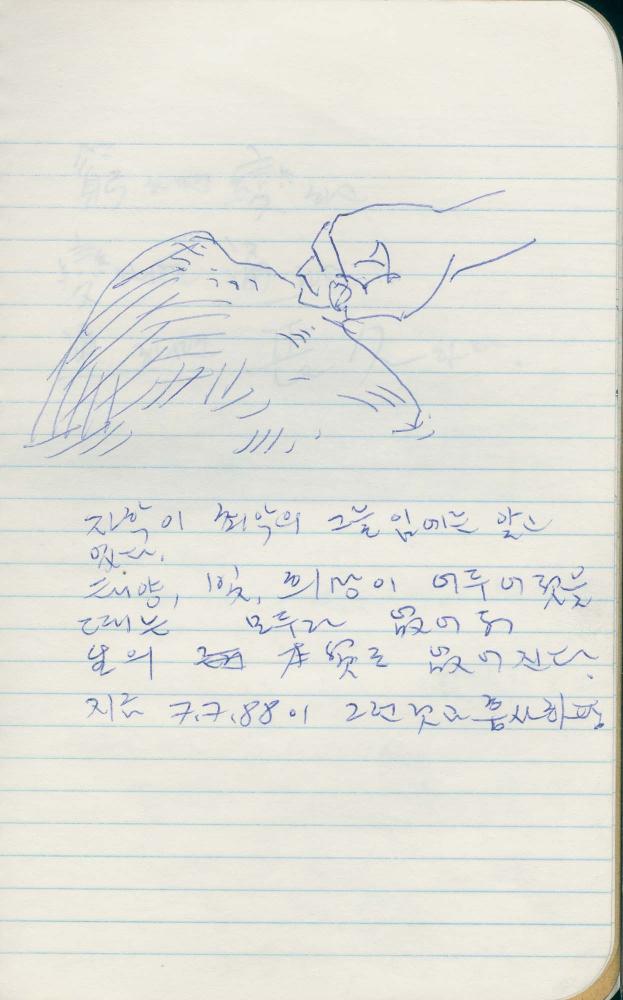 자학이 최악의 그늘임에는 알고
있다.
태양, 빛, 희망이 어두어졌을
때는 모두가 없어
없어진다.
지금 7.7.88이 그런것과 흡사하다